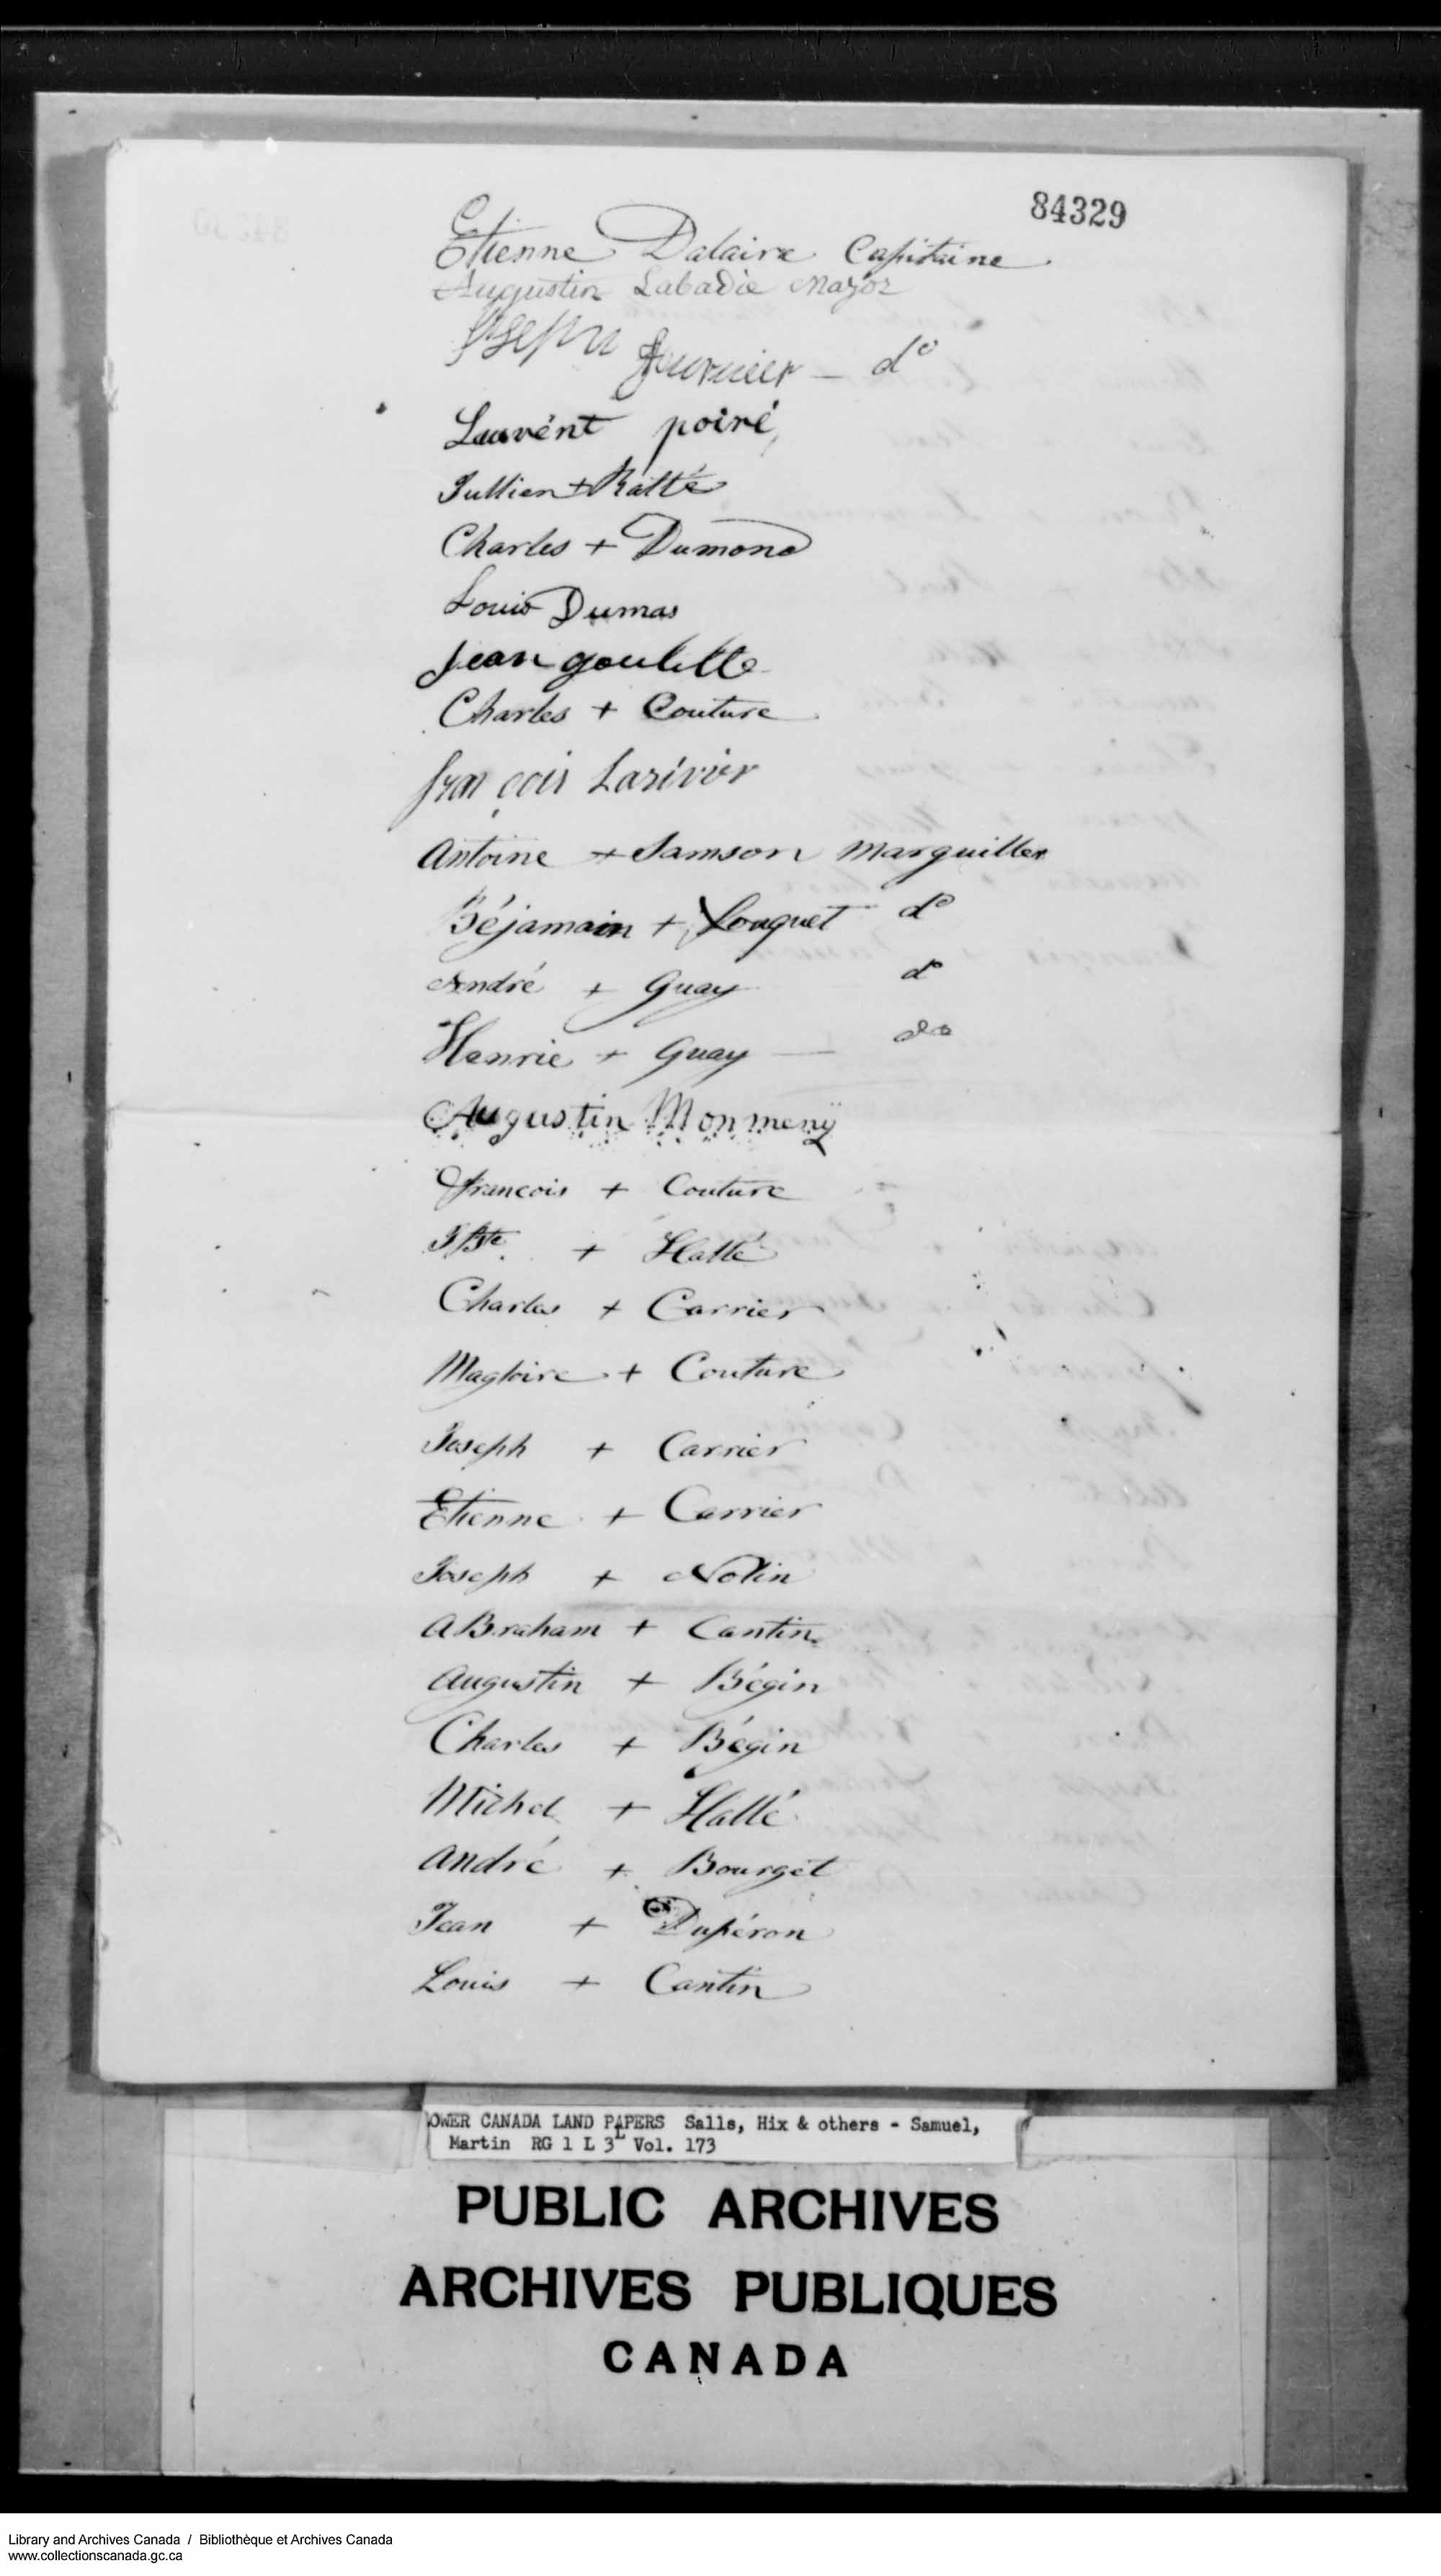 84329
Etienne Dalaire Capitaine
Augustin Labadie Major
Joseph fournier — do
Lauvént poiré
Jullien + Ratté
Charles + Dumond
Louis Dumas
Jean goulette
Charles + Couture
françois Larivier
Antoine + Samson Marguiller
Béjamain + Louquet do
André + Guay do
Henrie + Guay — do
Augustin Monmeny
francois + Couture
J Bte + Hallé
Charles + Carrier
Magloire + Couture
Joseph + Carrier
Etienne + Carrier
Joseph + Nolin
ABraham + Cantin
Augustin + Bégin
Charles + Bégin
Michel + Hallé
André + Bourget
Jean + Dupéron
Louis + Cantin
OWER CANADA LAND PAPERS Salls, Hix & others - Samuel,
Martin RG 1 L 3L Vol. 173
PUBLIC ARCHIVES
ARCHIVES PUBLIQUES
CANADA
Library and Archives Canada / Bibliothèque et Archives Canada
www.collectionscanada.gc.ca